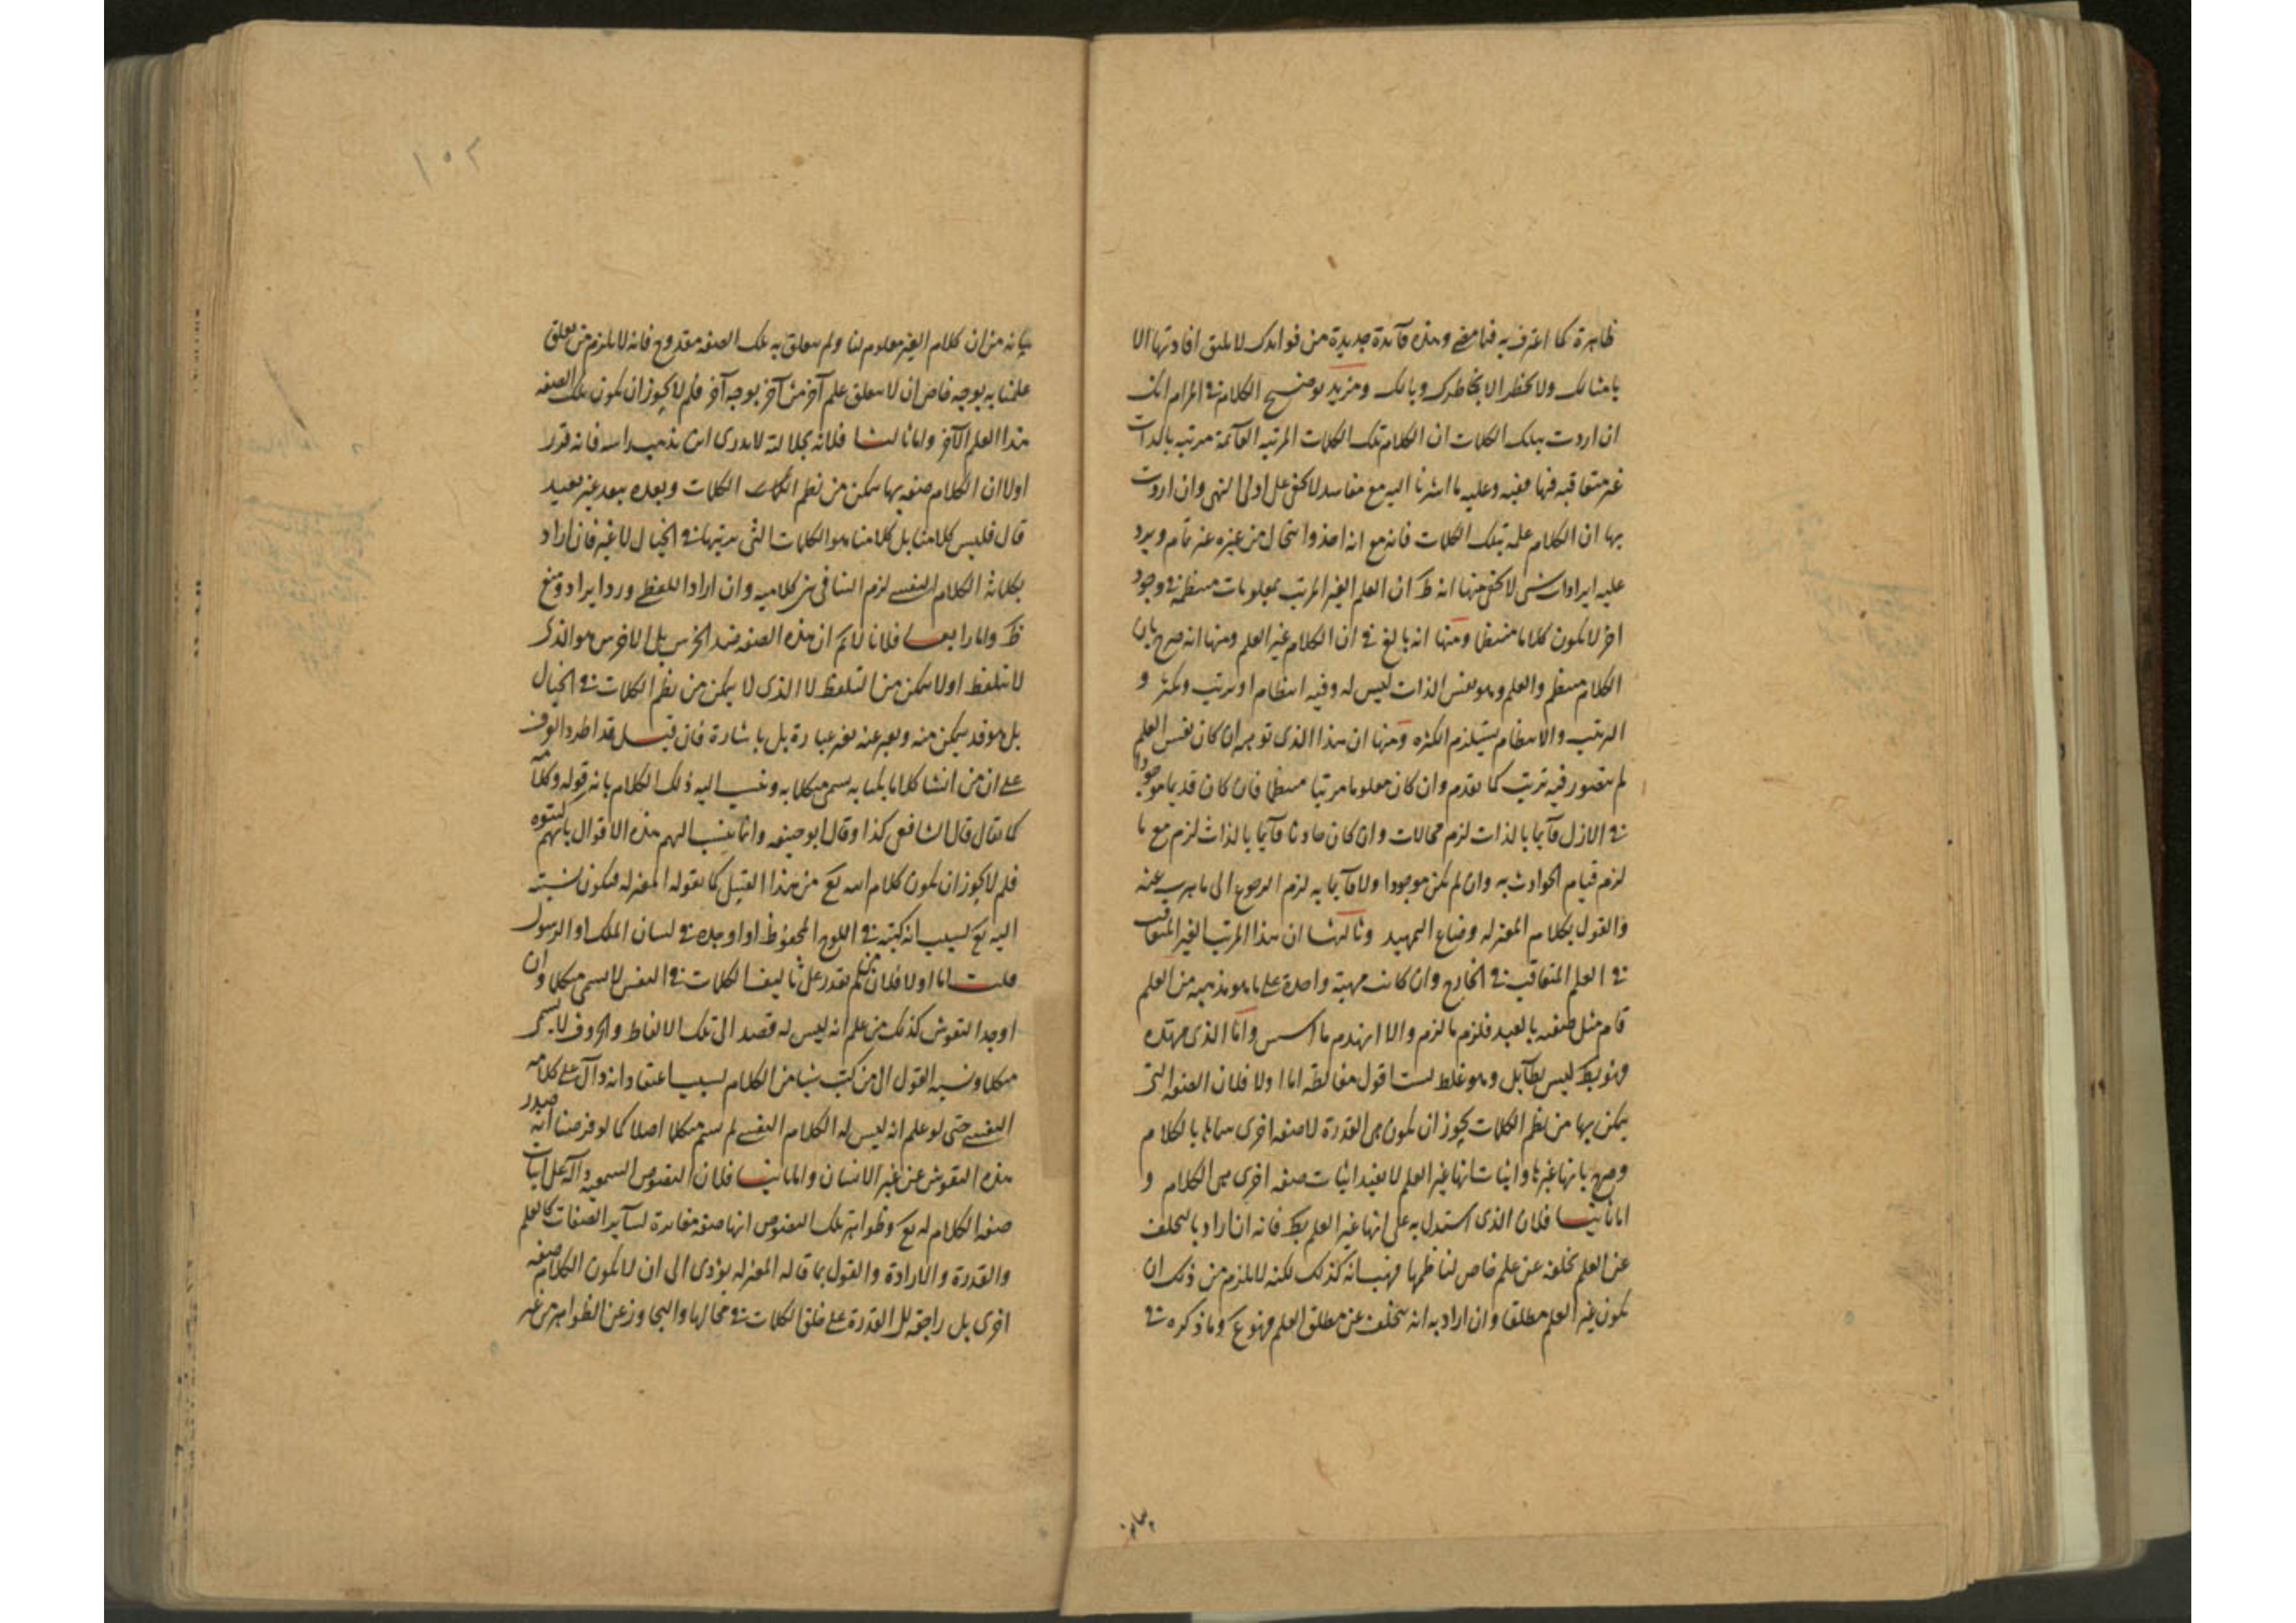 ظاهرة كما اعترف به فيما مضى وهذه فآئدة جديدة من فوايدك لا يليق افادتها الا
بامثالك ولا يخطر الا بخاطرك وبالك ومزيد توضيح الكلام في المرام انك
ان اردت بتلك الكلمات ان الكلام تلك الكلمات المرتبه القآئمة مرتبه بالذات
غير متعاقبه فيها ففيه وعليه ما اشرنا اليه مع مفاسد لا يخفى على اولى النهى وان اردت
بها ان الكلام علمه بتلك الكلمات فانه مع انه اخذ وانتحال من غيره غير تام ويرد
عليه ايرادات شتى لا يخفى منها انه ظ ان العلم الغير المرتب بمعلومات منتظمة في وجود
اخر لا يكون كلاما منتظما ومنها انه بالغ في ان الكلام غير العلم ومنها انه صرح بان
الكلام منتظم والعلم وهو نفس الذات ليس له وفيه انتظام او ترتيب وتكثر و
الترتيب والانتظام يستلزم الكثره ومنها ان هذا الذى توهم ان كان نفس العلم
لم يتصور فيه ترتيب كما تقدم وان كان معلوما مرتبا منتظما فان كان قديما موجودا
في الازل قآئما بالذات لزم محالات وان كان حادثا قآئما بالذات لزم مع ما
لزم قيام الحوادث به وان لم يكن موجودا ولا قآئما به لزم الرجوع الى ما يهرب عنه
والقول بكلام المعتزله وضاع التمهيد وثالثها ان هذا المرتب الغير المتعاقب
في العلم المتعاقب في الخارج وان كانت مهية واحدة على ما هو مذهبه من العلم
قام مثل صفته بالعبد فلزم ما لزم والا انهدم ما اسس واما الذى مهّده
فهو بط ليس بطآئل وهو غلط لست اقول مغالطه اما اولا فلان الصفه التى
يمكن بها من نظم الكلمات يجوز ان يكون هى القدرة لا صفه اخرى سماها بالكلام
وصرح بانها غيرها واثبات انها غير العلم لا يفيد اثبات صفه اخرى هى الكلام و
اما ثانيا فلان الذى استدل به على انها غير العلم بط فانه ان اراد بالتخلف
عن العلم تخلفه عن علم خاص لناظمها فهب انه كذلك لكنه لا يلزم من ذلك ان
يكون غير العلم مطلقا وان اراد به انه يتخلف عن مطلق العلم فهو ع وما ذكره في
بيانه
۱۰۲
بيانه من ان كلام الغير معلوم لنا ولم يتعلق به تلك الصفه مقدوح فانه لا يلزم من تعلق
علمنا به بوجه خاص ان لا يتعلق علم آخر منا آخر بوجه آخر فلم لا يجوز ان يكون تلك الصفه
هذا العلم الآخر واما ثالثا فلانه بجلالته لا يدرى اين يذهب راسه فانه قرر
اولا ان الكلام صفه بها يتمكن من نظم الكلمات وبعده ببعد غير بعيد
قال فليس كلامنا بل كلامنا هو الكلمات التى رتبناها في الخيال لا غير فان اراد
بكلامنا الكلام النفسى لزم التنافى بين كلاميه وان اراد اللفظى ورد ايراد ومنع
ظ واما رابعا فلانا لا نم ان هذه الصفه ضد الخرس بل الاخرس هو الذى
لا يتلفظ او لا يتمكن من التلفظ لا الذى لا يتمكن من نظم الكلمات في الخيال
بل هو قد يتمكن منه ويعبر عنه بغير عبارة بل باشارة فان قيل قد اطرد العرف
على ان من انشا كلاما يكتبا به يسمى متكلما به وينسب اليه ذلك الكلام بانه قوله وكلامه
كما يقال قال الشافعى كذا وقال ابو حنيفه وانما ينسب اليهم هذه الاقوال بانهم كتبوه
فلم لا يجوز ان يكون كلام الله تع من هذا القبيل كما يقوله المعتزله فيكون نسبته
اليه تع بسبب انه كتبه في اللوح المحفوظ او اوجده في لسان الملك او الرسول
قلت اما اولا فلان من لم يقدر على تاليف الكلمات في النفس لا يسمى متكلما وان
اوجد النقوش كذلك من علم انه ليس له قصد الى تلك الالفاظ والحروف لا يسمى
متكلما ونسبه القول الى من كتب شيا من الكلام بسبب اعتقاد انه دآل على كلامه
النفسى حتى لو علم انه ليس له الكلام النفسى لم يسم متكلما اصلا كما لو فرضنا انه صدر
هذه النقوش عن غير الانسان واما ثانيا فلان النصوص السمعيه دآلة على اثبات
صفة الكلام له تع وظواهر تلك النصوص انها صفه مغايرة لسآير الصفات كالعلم
والقدرة والارادة والقول بما قاله المعتزله يؤدى الى ان لا يكون الكلام صفه
اخرى بل راجعه الى القدرة على خلق الكلمات في محالها والتجاوز عن الظواهر من غير